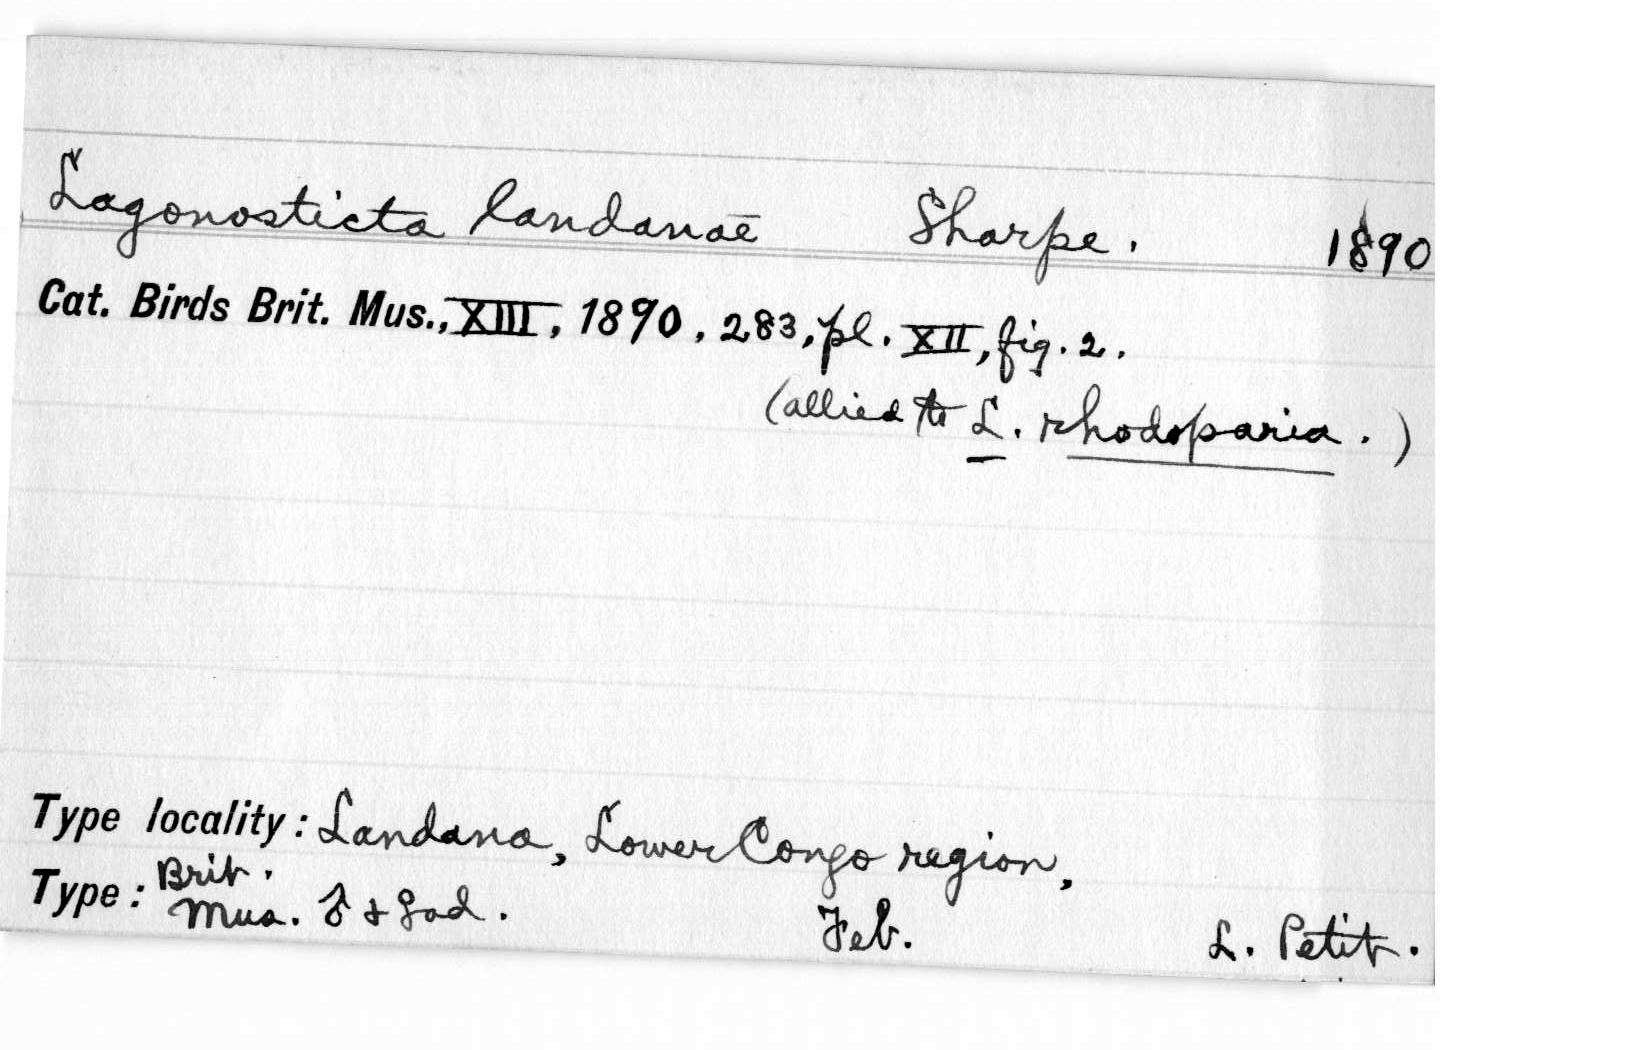 Lagonosticta landanae Sharpe. 1890
Cat. Birds Brit. Mus., XIII, 1890, 283, pl. XII, fig. 2.
(allied to L. rhodoparia.)
Type locality: Landana, Lower Congo region,
Type: Brit. Mus. ♂ & ad. Feb. L. Petit.